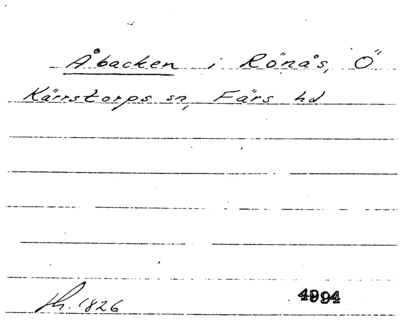 Åbacken i Rönås, Ö
Kärrstorps sn, Färs hd
fh. 1826
4994